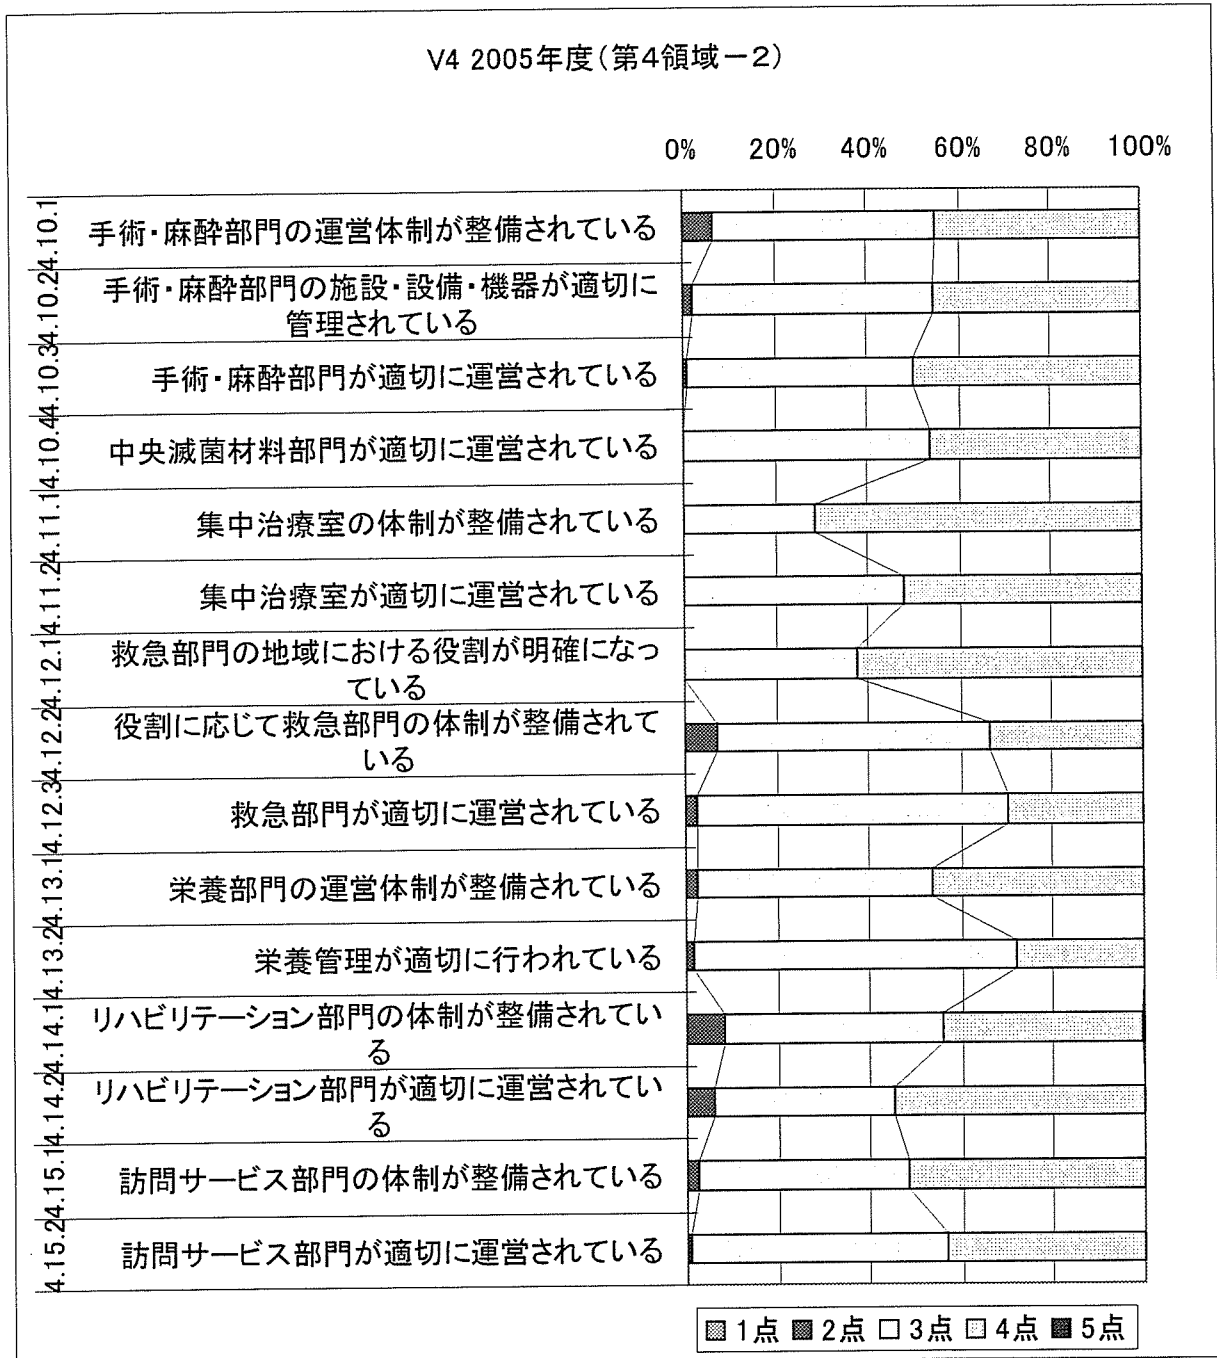 V4 2005年度(第4領域-2)
0% 20% 40% 60% 80% 100%
4.10.1
手術・麻酔部門の運営体制が整備されている
4.10.2
手術・麻酔部門の施設・設備・機器が適切に
管理されている
4.10.3
手術・麻酔部門が適切に運営されている
4.10.4
中央滅菌材料部門が適切に運営されている
4.11.1
集中治療室の体制が整備されている
4.11.2
集中治療室が適切に運営されている
4.12.1
救急部門の地域における役割が明確になっ
ている
4.12.2
役割に応じて救急部門の体制が整備されて
いる
4.12.3
救急部門が適切に運営されている
4.13.1
栄養部門の運営体制が整備されている
4.13.2
栄養管理が適切に行われている
4.14.1
リハビリテーション部門の体制が整備されてい
る
4.14.2
リハビリテーション部門が適切に運営されてい
る
4.15.1
訪問サービス部門の体制が整備されている
4.15.2
訪問サービス部門が適切に運営されている
1点 2点 3点 4点 5点